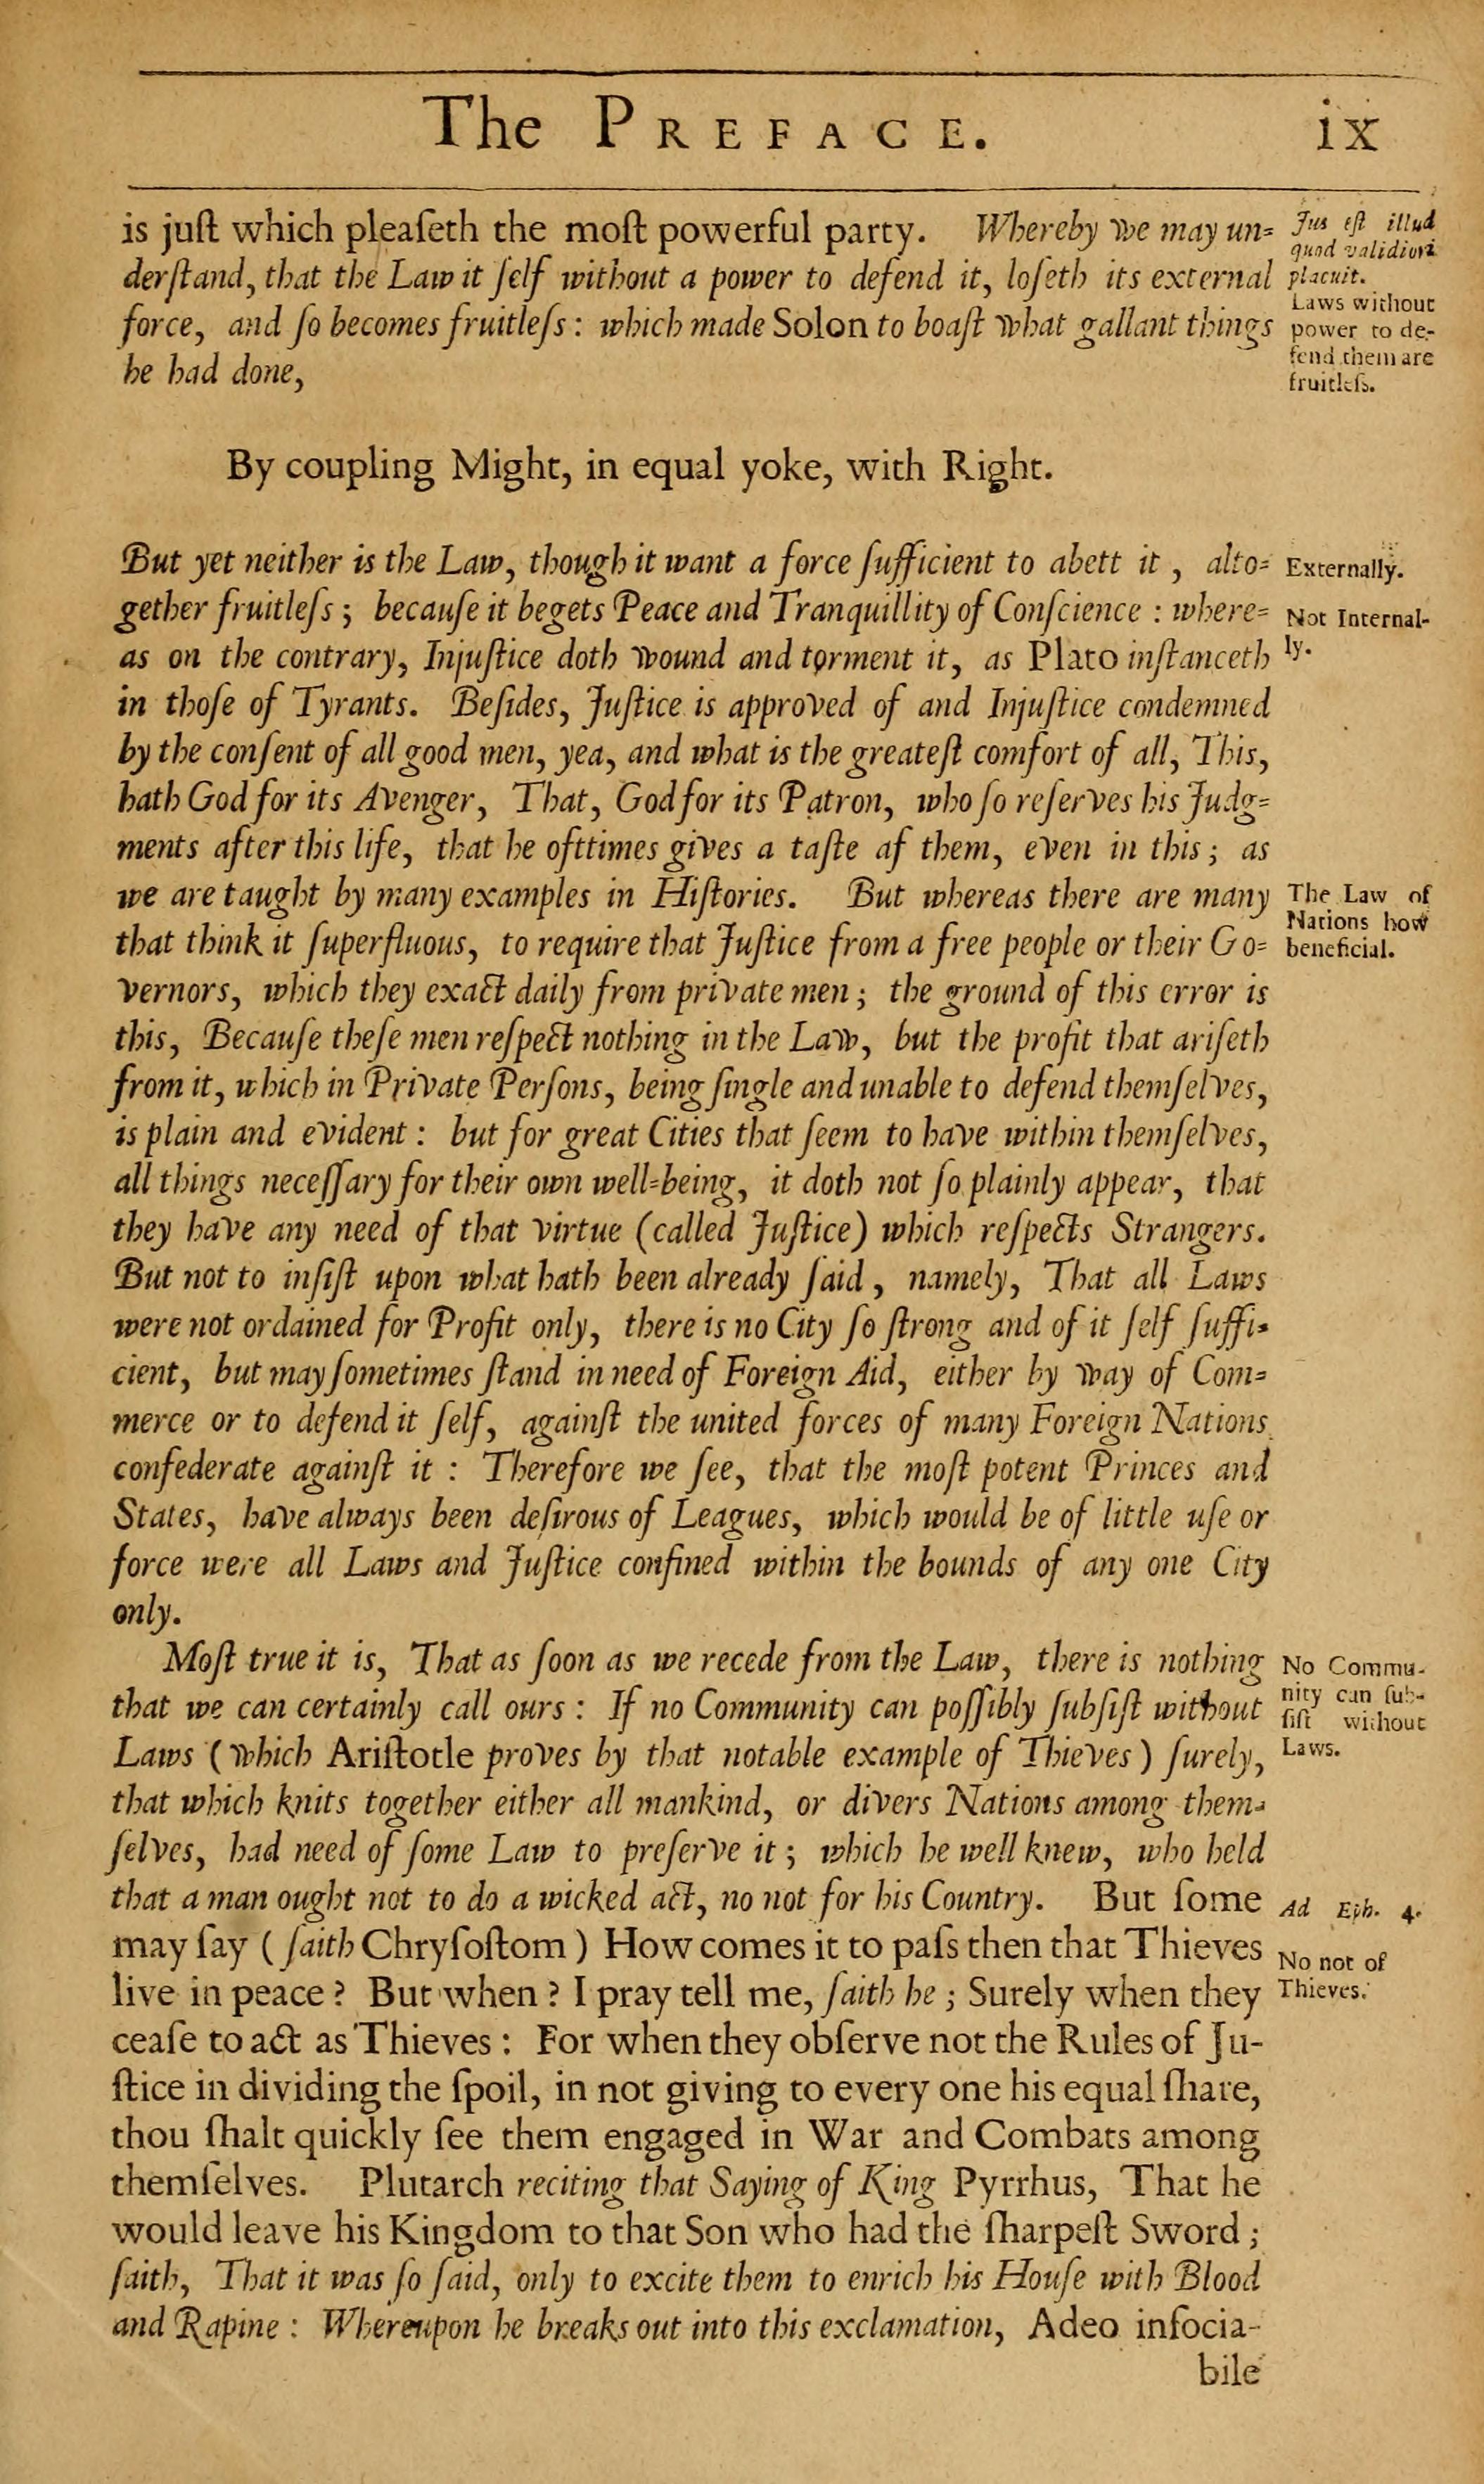 The PREFACE. ix
is juſt which pleaſeth the moſt powerful party. Whereby we may un-
derſtand, that the Law it ſelf without a power to defend it, loſeth its external
force, and ſo becomes fruitleſs: which made Solon to boaſt what gallant things
he had done,
Jus eſt illud
quod validiori
placuit.
Laws without
power to de-
fend them are
fruitleſs.
By coupling Might, in equal yoke, with Right.
But yet neither is the Law, though it want a force ſufficient to abett it, alto-
gether fruitleſs; becauſe it begets Peace and Tranquillity of Conſcience: where-
as on the contrary, Injuſtice doth wound and torment it, as Plato inſtanceth
in thoſe of Tyrants. Beſides, Juſtice is approved of and Injuſtice condemned
by the conſent of all good men, yea, and what is the greateſt comfort of all, This,
hath God for its Avenger, That, God for its Patron, who ſo reſerves his Judg-
ments after this life, that he ofttimes gives a taſte af them, even in this; as
we are taught by many examples in Hiſtories. But whereas there are many
that think it ſuperfluous, to require that Juſtice from a free people or their Go-
vernors, which they exact daily from private men; the ground of this error is
this, Becauſe theſe men reſpect nothing in the Law, but the profit that ariſeth
from it, which in Private Perſons, being ſingle and unable to defend themſelves,
is plain and evident: but for great Cities that ſeem to have within themſelves,
all things neceſſary for their own well-being, it doth not ſo plainly appear, that
they have any need of that virtue (called Juſtice) which reſpects Strangers.
But not to inſiſt upon what hath been already ſaid, namely, That all Laws
were not ordained for Profit only, there is no City ſo ſtrong and of it ſelf ſuffi-
cient, but may ſometimes ſtand in need of Foreign Aid, either by way of Com-
merce or to defend it ſelf, againſt the united forces of many Foreign Nations
confederate againſt it: Therefore we ſee, that the moſt potent Princes and
States, have always been deſirous of Leagues, which would be of little uſe or
force were all Laws and Juſtice confined within the bounds of any one City
only.
Externally.
Not Internal-
ly.
The Law of
Nations how
beneficial.
Moſt true it is, That as ſoon as we recede from the Law, there is nothing
that we can certainly call ours: If no Community can poſſibly ſubſiſt without
Laws (which Ariſtotle proves by that notable example of Thieves) ſurely,
that which knits together either all mankind, or divers Nations among them-
ſelves, had need of ſome Law to preſerve it; which he well knew, who held
that a man ought not to do a wicked act, no not for his Country. But ſome
may ſay (ſaith Chryſoſtom) How comes it to paſs then that Thieves
live in peace? But when? I pray tell me, ſaith he; Surely when they
ceaſe to act as Thieves: For when they obſerve not the Rules of Ju-
ſtice in dividing the ſpoil, in not giving to every one his equal ſhare,
thou ſhalt quickly ſee them engaged in War and Combats among
themſelves. Plutarch reciting that Saying of King Pyrrhus, That he
would leave his Kingdom to that Son who had the ſharpeſt Sword;
ſaith, That it was ſo ſaid, only to excite them to enrich his Houſe with Blood
and Rapine: Whereupon he breaks out into this exclamation, Adeo inſocia-
bile
No Commu-
nity can ſub-
ſiſt without
Laws.
Ad Eph. 4.
No not of
Thieves.